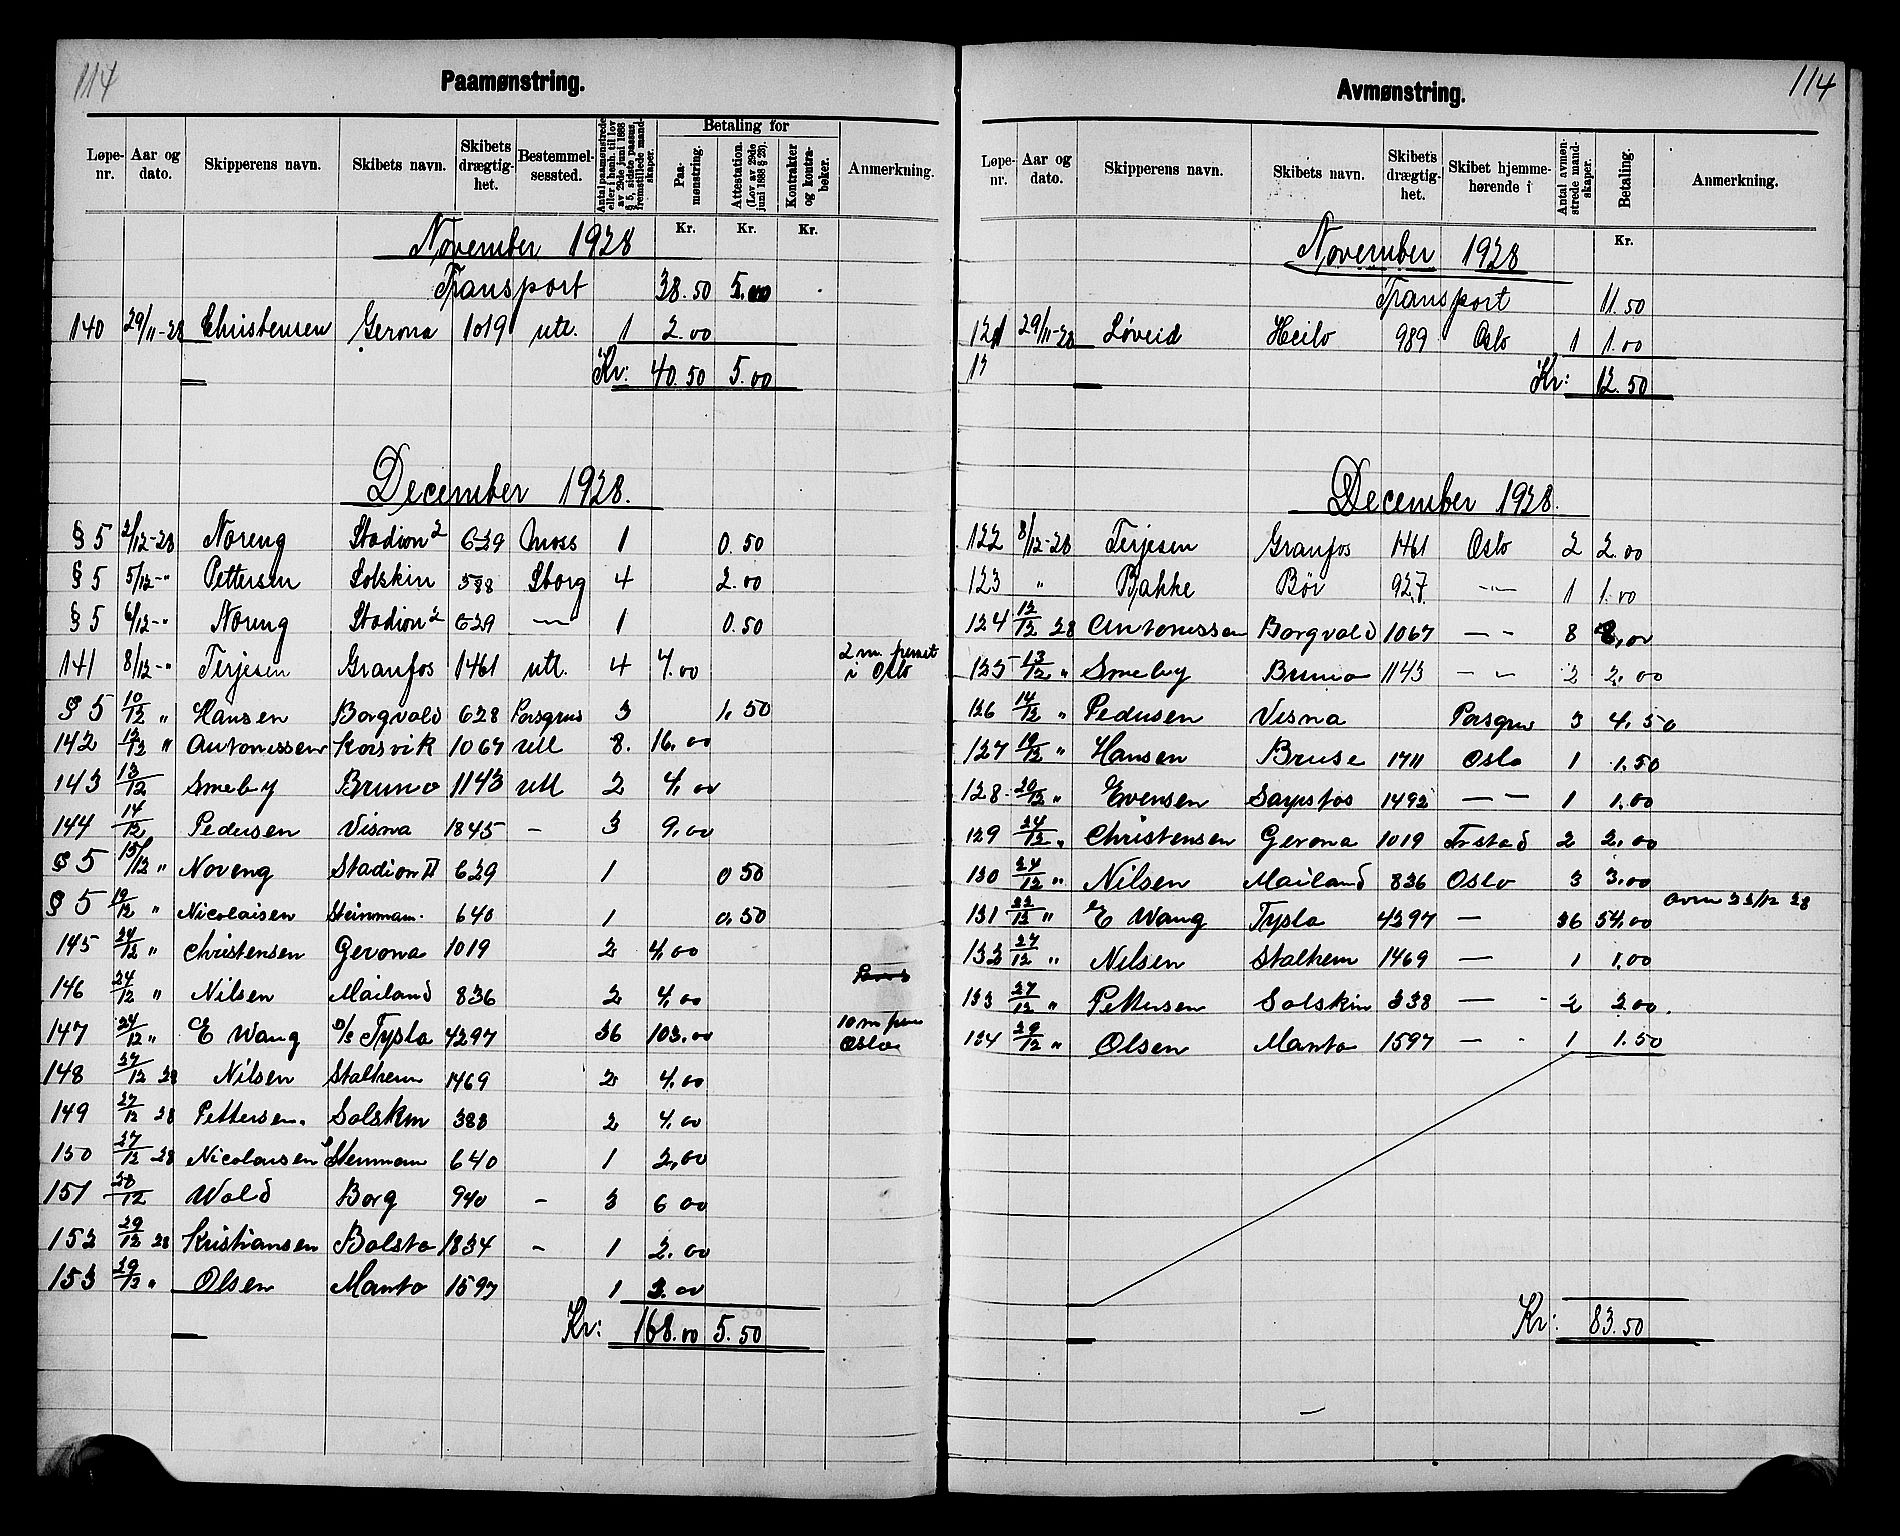 114
Paamønstring.
Løpe-nr. | Aar og dato. | Skipperens navn. | Skibets navn. | Skibets drægtig-het. | Bestemmel-sessted. | Antal paamønstrede eller i henh. til lov av 29de juni 1888 § 5, sidste passus, fremstillede mand-skaper. | Betaling for | Paa-mønstring. | Attestation. (Lov av 29de juni 1888 § 23). | Kontrakter og kontra-bøker. | Anmerkning.
Kr. Kr. Kr.
November 1928
Transport 38.50 5.00
140 29/11-28 Christensen Gerona 1019 utl. 1 2.00
Kr: 40.50 5.00
December 1928.
§ 5 3/12-28 Noreng Stadion 2 629 Moss 1 0.50
§ 5 5/12-" Pettersen Solskin 388 Sborg 4 2.00
§ 5 6/12-" Noreng Stadion 2 629 — 1 0.50
141 8/12-" Terjesen Granfos 1461 utl. 4 4.00 2 m. permet i Oslo
§ 5 10/12 " Hansen Borgvald 628 Porsgrus 3 1.50
142 12/12 " Antonissen Korsvik 1067 utl 8. 16.00
143 13/12 Smeby Bruno 1143 utl 2 4.00
144 14/12 Pedersen Visna 1845 - 3 9.00
§ 5 15/12 " Noreng Stadion II 629 1 0 50
§ 5 19/12 " Nicolaisen Steinmann. 640 1 0.50
145 24/12 " Christensen Gerona 1019 2 4.00
146 24/12 " Nilsen Mailand 836 2 4.00
147 24/12 " E Wang D/S Tysla 4297 36 103.00 10 m per Oslo
148 27/12 28 Nilsen Stalheim 1469 2 4.00
149 27/12 28 Pettersen. Solskin 388 2 4.00
150 27/12 28 Nicolausen Stenmann 640 1 2.00
151 28/12 Wold Borg 940 - 3 6 00
152 29/12 28 Kristiansen Balsta 1834 - 1 2.00
153 29/12 " Olsen Manto 1597 1 3.00
Kr: 168.00 5.50
114
Avmønstring.
Løpe-nr. | Aar og dato. | Skipperens navn. | Skibets navn. | Skibets drægtig-het. | Skibet hjemme-hørende i | Antal avmøn-strede mand-skaper. | Betaling. | Anmerkning.
Kr.
November 1928
Transport 11.50
121 29/11-28 Løveid Heilo 989 Oslo 1 1.00
Kr: 12.50
December 1928.
122 8/12-28 Terjesen Granfos 1461 Oslo 2 2.00
123 " Bakke Bør 927. -"- 1 1.00
124 12/12 28 Antonissen Borgvald 1067 — - 8 8.00
125 13/12 " Smeby Bruno 1143 — - 2 2.00
126 14/12 " Pedersen Visna Porsgrus 3 4.50
127 19/12 " Hansen Bruse 1711 Oslo 1 1.50
128 20/12 " Evensen Sarpsfos 1492 — - 1 1.00
129 24/12 " Christensen Gerona 1019 Frstad 2 2.00
130 24/12 " Nilsen Mailand 836 Oslo 3 3.00
131 22/12 " E Wang Tysla 4297 — 36 54.00 avm 22/12 28
132 27/12 " Nilsen Stalheim 1469 — 1 1.00
133 27/12 " Pettersen Solskin 338 — 2 2.00.
134 29/12 " Olsen Manto 1597 — 1 1.50
Kr: 83.50